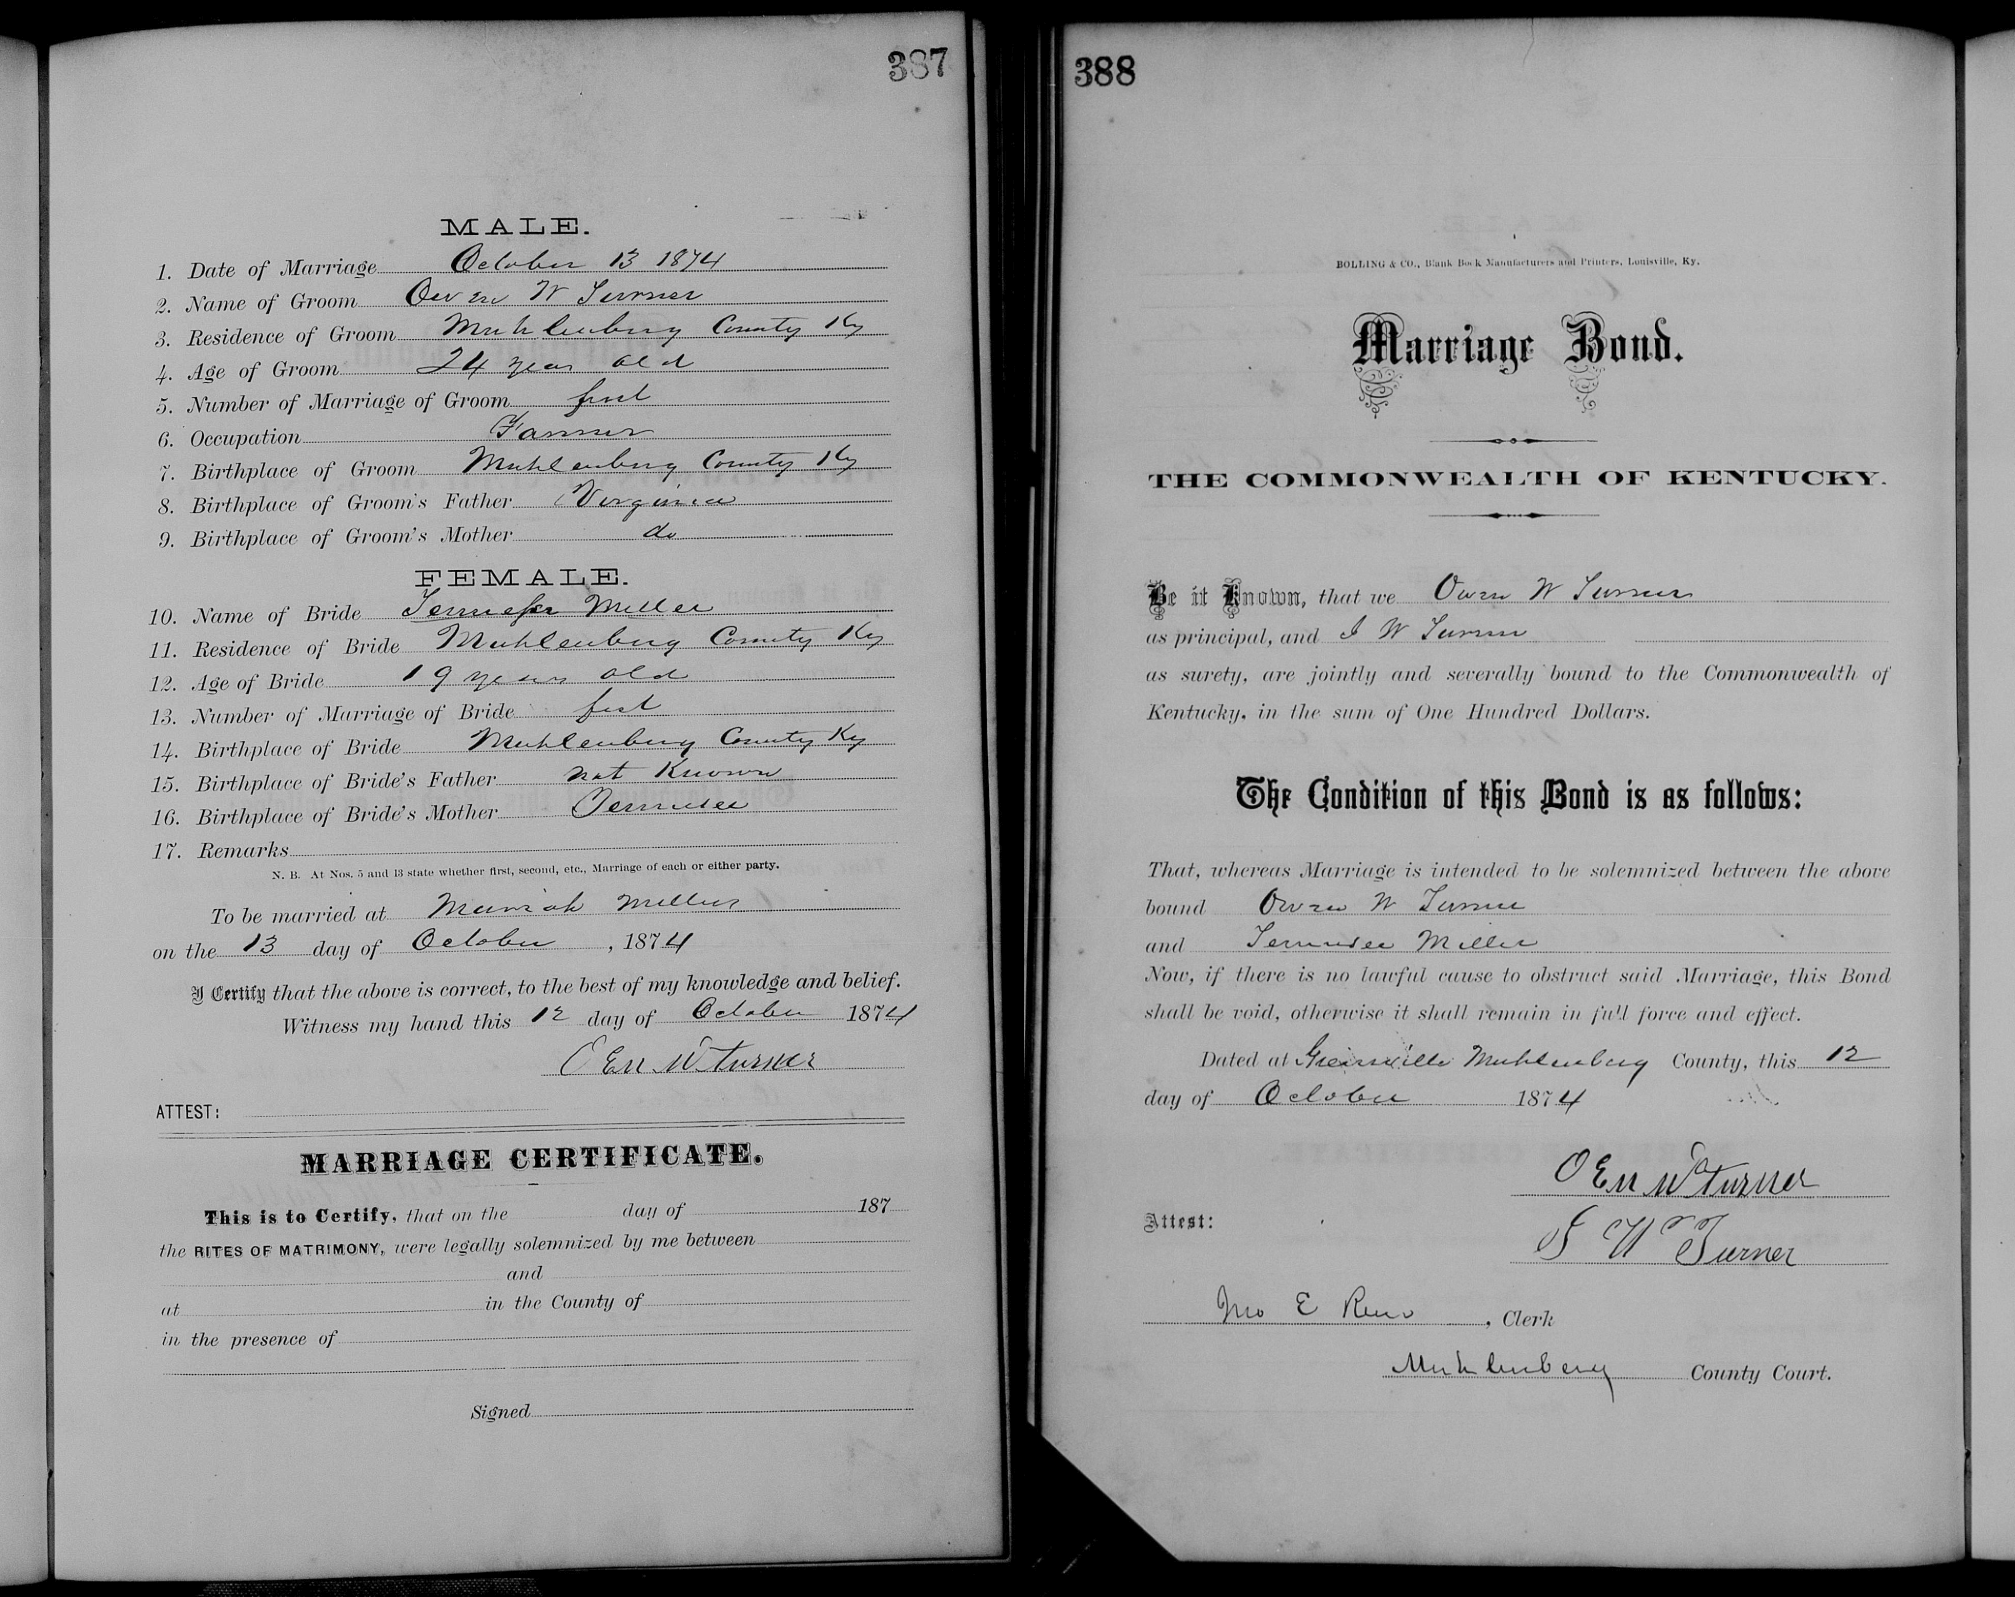 387
MALE.
1. Date of Marriage October 13 1874
2. Name of Groom Owen W Turner
3. Residence of Groom Muhlenberg County Ky
4. Age of Groom 24 year old
5. Number of Marriage of Groom first
6. Occupation Farmer
7. Birthplace of Groom Muhlenberg County Ky
8. Birthplace of Groom's Father Virginia
9. Birthplace of Groom's Mother do
FEMALE.
10. Name of Bride Miller
11. Residence of Bride Muhlenberg County Ky
12. Age of Bride 19 years old
13. Number of Marriage of Bride first
14. Birthplace of Bride Muhlenberg County Ky
15. Birthplace of Bride's Father not Known
16. Birthplace of Bride's Mother Tennessee
17. Remarks
N. B. At Nos. 5 and 13 state whether first, second, etc., Marriage of each or either party.
To be married at Mariah Millers
on the 13 day of October, 1874
I Certify that the above is correct, to the best of my knowledge and belief.
Witness my hand this 12 day of October 1874
O En W turner
ATTEST:
MARRIAGE CERTIFICATE.
This is to Certify, that on the day of 187
the RITES OF MATRIMONY, were legally solemnized by me between
and
at in the County of
in the presence of
Signed
388
BOLLING & CO., Blank Book Manufacturers and Printers, Louisville, Ky.
Marriage Bond.
THE COMMONWEALTH OF KENTUCKY.
Be it Known, that we Owen W Turner
as principal, and J W Turner
as surety, are jointly and severally bound to the Commonwealth of
Kentucky, in the sum of One Hundred Dollars.
The Condition of this Bond is as follows:
That, whereas Marriage is intended to be solemnized between the above
bound Owen W Turner
and Tennessee Miller
Now, if there is no lawful cause to obstruct said Marriage, this Bond
shall be void, otherwise it shall remain in full force and effect.
Dated at Greenville Muhlenberg County, this 12
day of October 1874
O En W turner
Attest:
J W Turner
Jno E Reno, Clerk
Muhlenberg County Court.